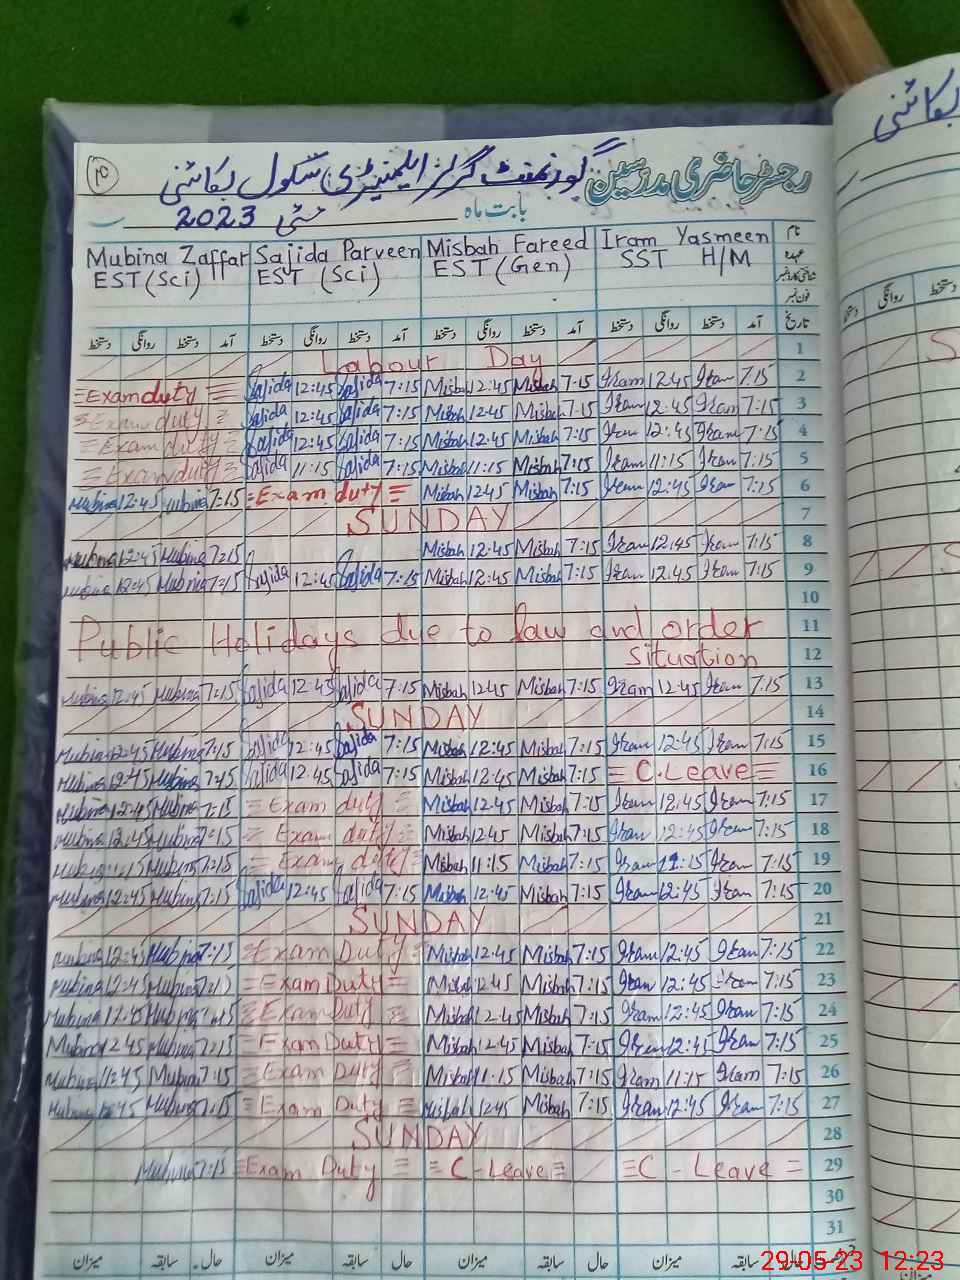 ۳۰
رجسٹر حاضری مدرسین گورنمنٹ گرلز ایلیمنٹری سکول
بابت ماہ مئی 2023
نام Iram Yasmeen Misbah Fareed Sajida Parveen Mubina Zaffar
عہدہ SST H/M EST (Gen) EST (Sci) EST (Sci)
شناختی کارڈ نمبر
فون نمبر
تاریخ آمد دستخط روانگی دستخط آمد دستخط روانگی دستخط آمد دستخط روانگی دستخط آمد دستخط روانگی دستخط
Labour Day 1
Exam duty Sajida 12:45 Sajida 7:15 Misbah 12:45 Misbah 7:15 Iram 12:45 Iram 7:15 2
Exam duty Sajida 12:45 Sajida 7:15 Misbah 12:45 Misbah 7:15 Iram 12:45 Iram 7:15 3
Exam duty Sajida 12:45 Sajida 7:15 Misbah 12:45 Misbah 7:15 Iram 12:45 Iram 7:15 4
Exam duty Sajida 11:15 Sajida 7:15 Misbah 11:15 Misbah 7:15 Iram 11:15 Iram 7:15 5
Mubina 12:45 Mubina 7:15 Exam duty Misbah 12:45 Misbah 7:15 Iram 12:45 Iram 7:15 6
SUNDAY 7
Mubina 12:45 Mubina 7:15 Misbah 12:45 Misbah 7:15 Iram 12:45 Iram 7:15 8
Mubina 12:45 Mubina 7:15 Sajida 12:45 Sajida 7:15 Misbah 12:45 Misbah 7:15 Iram 12:45 Iram 7:15 9
10
Public Holidays due to law and order 11
situation 12
Mubina 12:45 Mubina 7:15 Sajida 12:45 Sajida 7:15 Misbah 12:45 Misbah 7:15 Iram 12:45 Iram 7:15 13
SUNDAY 14
Mubina 12:45 Mubina 7:15 Sajida 12:45 Sajida 7:15 Misbah 12:45 Misbah 7:15 Iram 12:45 Iram 7:15 15
Mubina 12:45 Mubina Sajida 12:45 Sajida 7:15 Misbah 12:45 Misbah 7:15 C.Leave 16
Mubina 12:45 Mubina 7:15 Exam duty Misbah 12:45 Misbah 7:15 Iram 12:45 Iram 7:15 17
Mubina 12:45 Mubina 7:15 Exam duty Misbah 12:45 Misbah 7:15 Iram 12:45 Iram 7:15 18
Mubina Mubina 7:15 Exam duty Misbah 11:15 Misbah 7:15 Iram Iram 7:15 19
Mubina 12:45 Mubina 7:15 Sajida 12:45 Sajida 7:15 Misbah 12:45 Misbah 7:15 Iram 12:45 Iram 7:15 20
SUNDAY 21
Mubina 12:45 Mubina 7:15 Exam Duty Misbah 12:45 Misbah 7:15 Iram 12:45 Iram 7:15 22
Mubina 12:45 Mubina 7:15 Exam Duty Misbah 12:45 Misbah 7:15 Iram 12:45 Iram 7:15 23
Mubina 12:45 Mubina Exam Duty Misbah 12:45 Misbah 7:15 Iram 12:45 Iram 7:15 24
Mubina 12:45 Mubina 7:15 Exam Duty Misbah 12:45 Misbah 7:15 Iram 12:45 Iram 7:15 25
Mubina 11:45 Mubina 7:15 Exam Duty Misbah 11:15 Misbah 7:15 Iram 11:15 Iram 7:15 26
Mubina 12:45 Mubina 7:15 Exam Duty Misbah 12:45 Misbah 7:15 Iram 12:45 Iram 7:15 27
SUNDAY 28
Mubina 7:15 Exam Duty C-Leave C-Leave 29
30
31
حال سابقہ میزان حال سابقہ میزان حال سابقہ میزان حال سابقہ میزان
29-05-23 12:23
دستخط روانگی دستخط